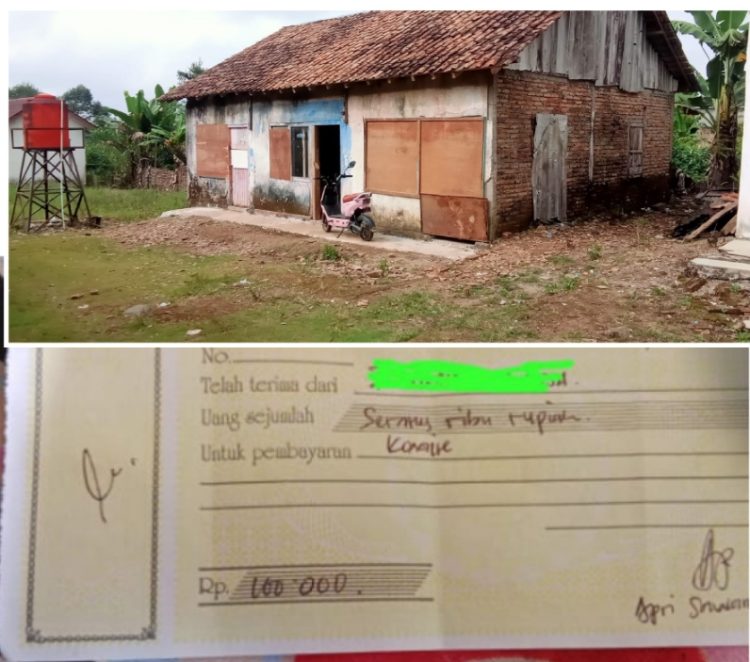 No.
Telah terima dari
Uang sejumlah Seratus ribu rupiah.
Untuk pembayaran Komite
Rp. 100.000.
Apri